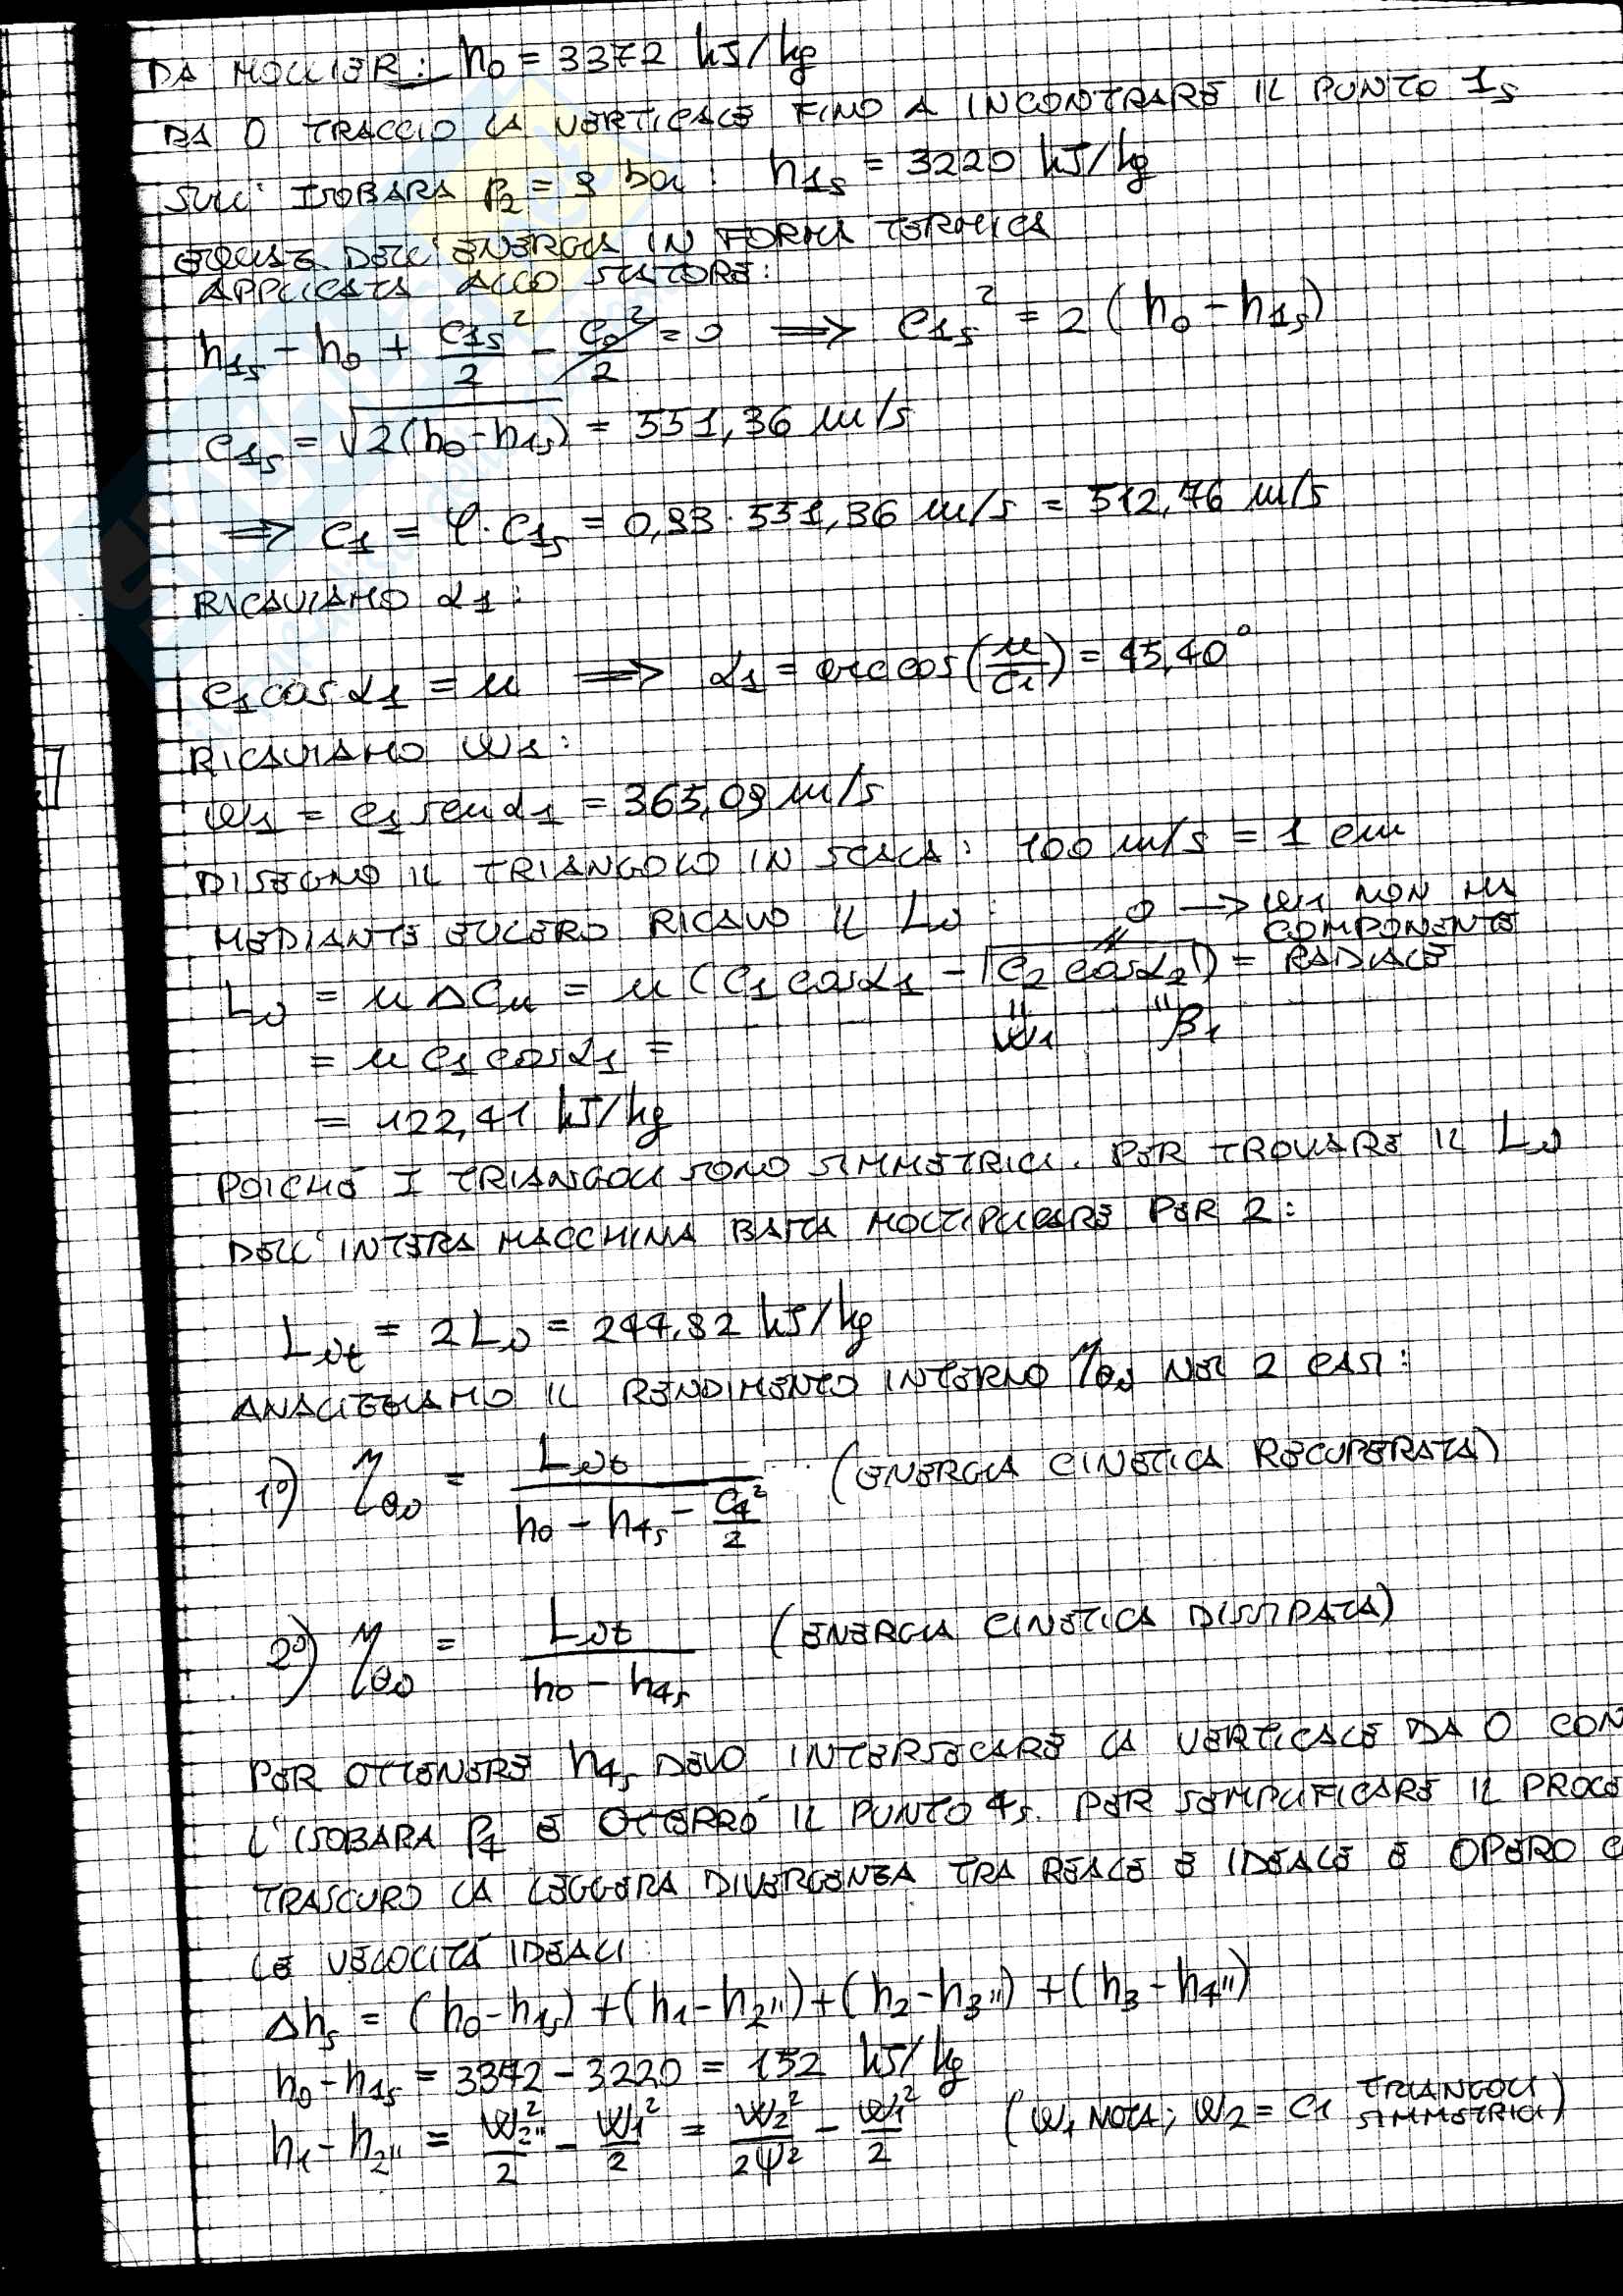 DA MOLLIER: h₀ = 3372 kJ/kg
DA 0 TRACCIO LA VERTICALE FINO A INCONTRARE IL PUNTO 1s
SULL' ISOBARA p₂ = 9 bar: h₁s = 3220 kJ/kg
EQUAZ. DELL'ENERGIA IN FORMA TERMICA
APPLICATA ALLO STATORE:
h₁s - h₀ + c₁s²/2 - c₀²/2 = 0 ⟹ c₁s² = 2 (h₀ - h₁s)
c₁s = √2(h₀-h₁s) = 551,36 m/s
⟹ c₁ = φ · c₁s = 0,93 · 551,36 m/s = 512,76 m/s
RICAVIAMO α₁:
c₁ cos α₁ = u ⟹ α₁ = arccos(u/c₁) = 45,40°
RICAVIAMO w₁:
w₁ = c₁ sen α₁ = 365,09 m/s
DISEGNO IL TRIANGOLO IN SCALA: 100 m/s = 1 cm
MEDIANTE EULERO RICAVO IL Li: 0 → w₁ NON HA COMPONENTE RADIALE
Li = u Δcu = u (c₁ cos α₁ - |c₂ cos α₂|) =
= u c₁ cos α₁ = w₁ β₁
= 122,41 kJ/kg
POICHÉ I TRIANGOLI SONO SIMMETRICI. PER TROVARE IL Li
DELL'INTERA MACCHINA BASTA MOLTIPLICARE PER 2:
Lit = 2Li = 244,82 kJ/kg
ANALIZZIAMO IL RENDIMENTO INTERNO ηθi NEI 2 CASI:
1°) ηθi = Lit / (h₀ - h₄s - c₄²/2) (ENERGIA CINETICA RECUPERATA)
2°) ηθi = Lit / (h₀ - h₄s) (ENERGIA CINETICA DISSIPATA)
PER OTTENERE h₄s DEVO INTERSECARE LA VERTICALE DA 0 CON
L'ISOBARA p₄ E OTTERRÒ IL PUNTO 4s. PER SEMPLIFICARE IL PROCE
TRASCURO LA LEGGERA DIVERGENZA TRA REALE E IDEALE E OPERO C
LE VELOCITÀ IDEALI:
Δhs = (h₀-h₁s) + (h₁-h₂'') + (h₂-h₃'') + (h₃-h₄'')
h₀-h₁s = 3372 - 3220 = 152 kJ/kg
h₁-h₂'' = w₂''²/2 - w₁²/2 = w₂²/2ψ² - w₁²/2 (w₁ NOTA; w₂ = c₁ TRIANGOLI SIMMETRICI)